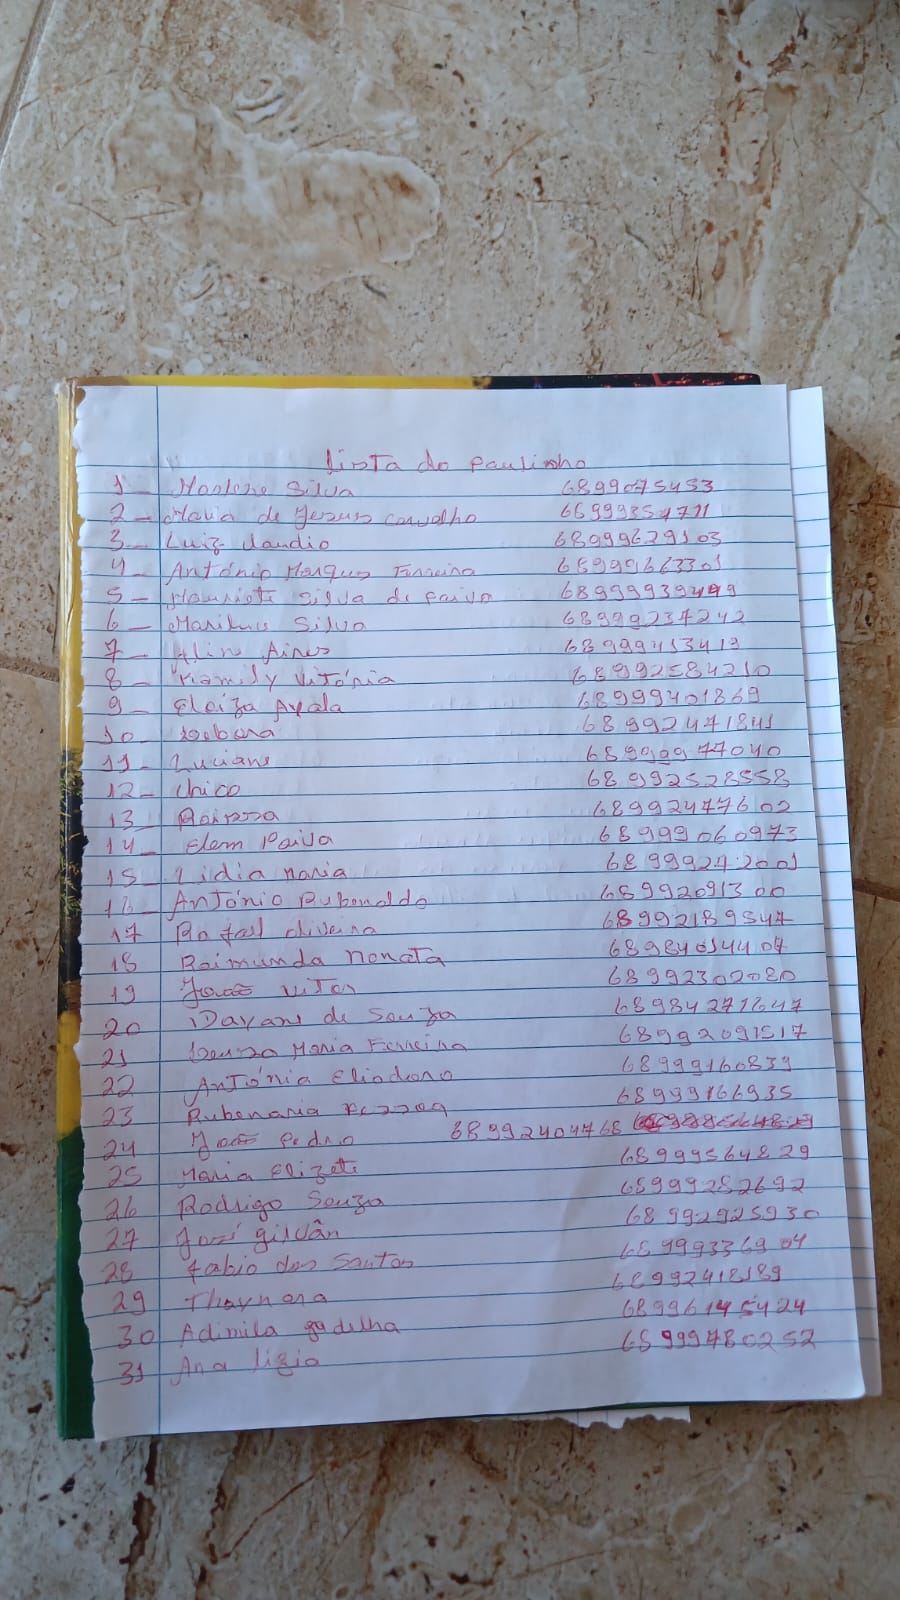 Lista do Paulinho
1 - Marlene Silva 6899075453
2 - Maria de Jesus Carvalho 68999354711
3 - Luiz Claudio 68999629103
4 - Antônio Marques Ferreira 68999663301
5 - Silva de Paiva 68999939499
6 - Marilene Silva 68999237242
7 - Aline Aires 68999413419
8 - Kamily Vitória 68992584210
9 - Eloiza Ayala 68999401869
10 - Debora 68992471841
11 - Luciane 68999977040
12 - Chico 68992528558
13 - Raissa 68992477602
14 - Elem Paiva 68999060973
15 - Lidia Maria 68999242001
16 - Antônio Rubenaldo 68992091300
17 Rafael Oliveira 68992189547
18 Raimunda Nonata 68984014407
19 João Vitor 68992302080
20 Dayane de Souza 68984271647
21 Maria Ferreira 68992091517
22 Antônia Eliodora 68999160839
23 Rubenaria 68999166935
24 João Pedro 68992404768
25 Maria Elizete 68999564829
26 Rodrigo Souza 68999282692
27 José Gilvân 68992925930
28 Fabio dos Santos 68999336904
29 Thaynara 68992418189
30 Adimila gadelha 68996145424
31 Ana lizia 68999780252